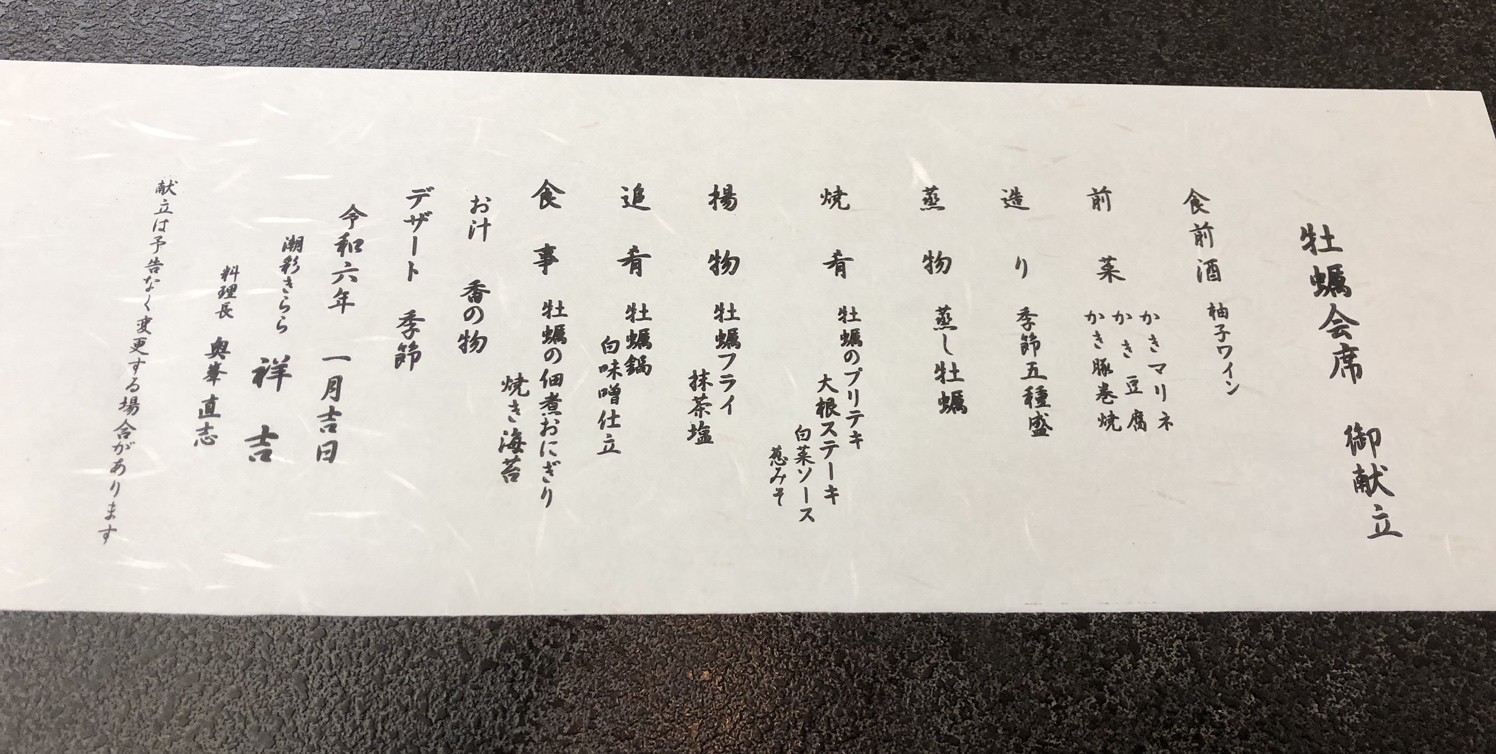 牡蠣会席　御献立
食前酒　柚子ワイン
前菜　かきマリネ
かき豆腐
かき豚巻焼
造り　季節五種盛
蒸物　蒸し牡蠣
焼肴　牡蠣のプリテキ
大根ステーキ
白菜ソース
葱みそ
揚物　牡蠣フライ
抹茶塩
追肴　牡蠣鍋
白味噌仕立
食事　牡蠣の佃煮おにぎり
焼き海苔
お汁　香の物
デザート　季節
令和六年　一月吉日
潮彩きらら　祥吉
料理長　奥峯直志
献立は予告なく変更する場合があります